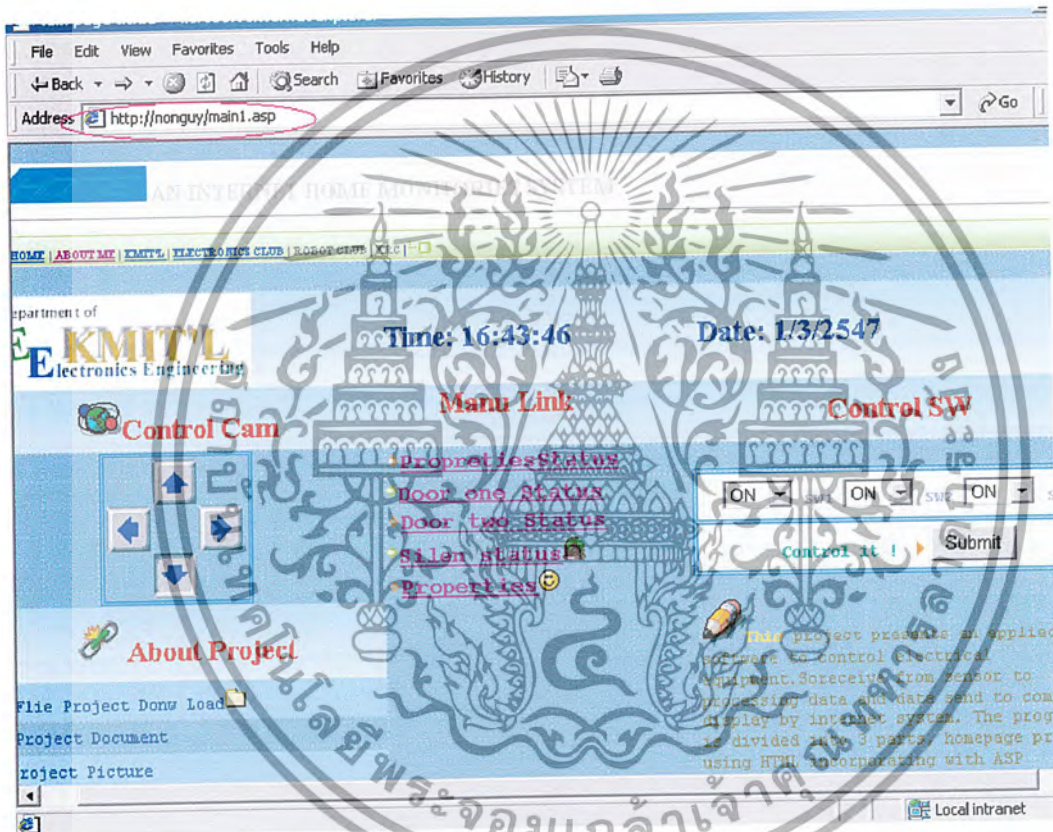 File Edit View Favorites Tools Help
Back Search Favorites History
Address http://nonguy/main1.asp Go
AN INTERNET HOME MONITORING SYSTEM
HOME | ABOUT ME | KMIT'L | ELECTRONICS CLUB | ROBOT CLUB |
epartment of
EE KMIT'L
Electronics Engineering
Time: 16:43:46 Date: 1/3/2547
Control Cam Manu Link Control SW
PropretiesStatus
Door one Status
Door two Status
Silen status
Properties
ON SW1 ON SW2 ON
Control it ! Submit
About Project
Flie Project Donw Load
Project Document
roject Picture
This project presents an applied
software to control electrical
equipment.Soreceive from sensor to
processing data and date send to com
display by internet system. The prog
is divided into 3 parts, homepage pr
using HTML incorporating with ASP
Local intranet